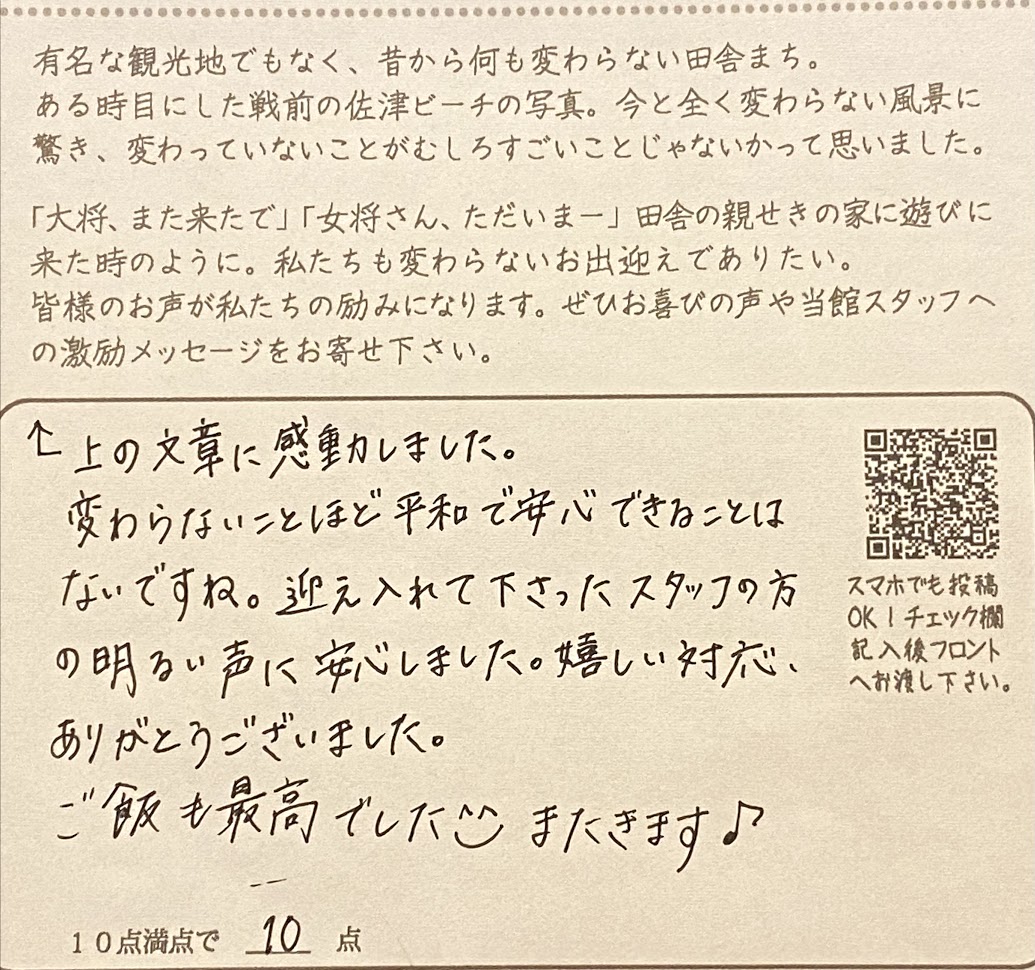 有名な観光地でもなく、昔から何も変わらない田舎まち。
ある時目にした戦前の佐津ビーチの写真。今と全く変わらない風景に
驚き、変わっていないことがむしろすごいことじゃないかって思いました。
「大将、また来たで」「女将さん、ただいまー」田舎の親せきの家に遊びに
来た時のように。私たちも変わらないお出迎えでありたい。
皆様のお声が私たちの励みになります。ぜひお喜びの声や当館スタッフへ
の激励メッセージをお寄せ下さい。
↑上の文章に感動しました。
変わらないことほど平和で安心できることは
ないですね。迎え入れて下さったスタッフの方
の明るい声に安心しました。嬉しい対応、
ありがとうございました。
ご飯も最高でした^^ またきます♪
スマホでも投稿
OK！チェック欄
記入後フロント
へお渡し下さい。
10点満点で 10 点